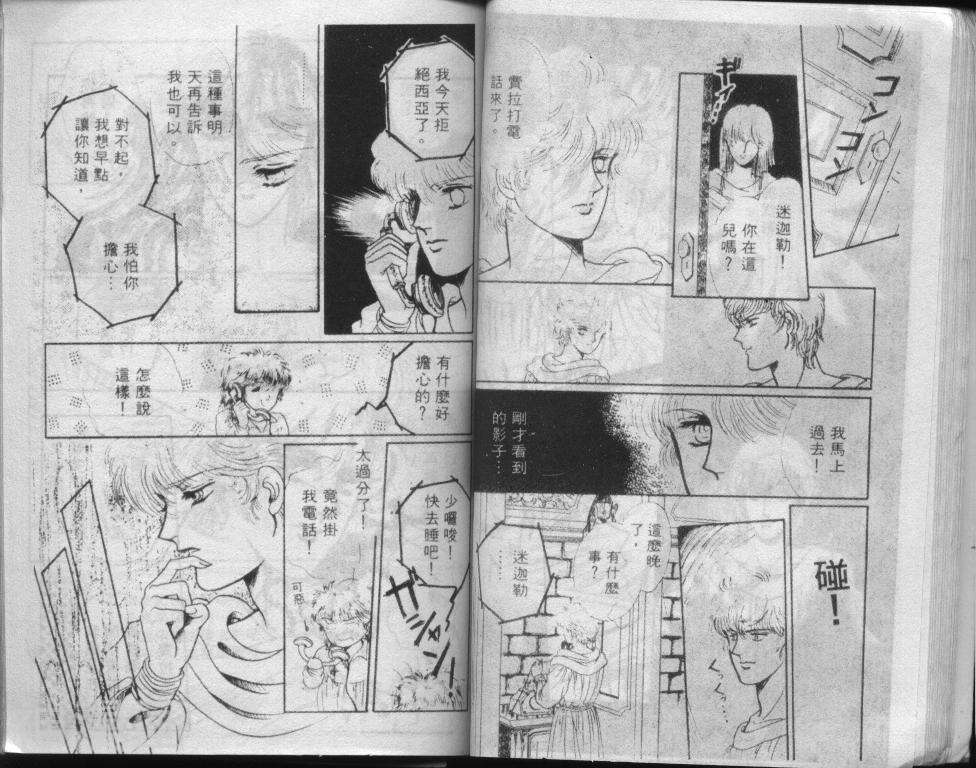 コン
コン
ギ
迷迦勒！
你在這
兒嗎？
費拉打電
話來了。
我馬上
過去！
剛才看到
的影子…
碰！
くっくっ…
這麼晚
了，
有什麼
事？
迷迦勒
……
我今天拒
絕西亞了。
這種事明
天再告訴
我也可以。
對不起，
我想早點
讓你知道，
我怕你
擔心…
有什麼好
擔心的？
怎麼說
這樣！
少囉唆！
快去睡吧！
ガシャン
太過分了！
竟然掛
我電話！
可惡